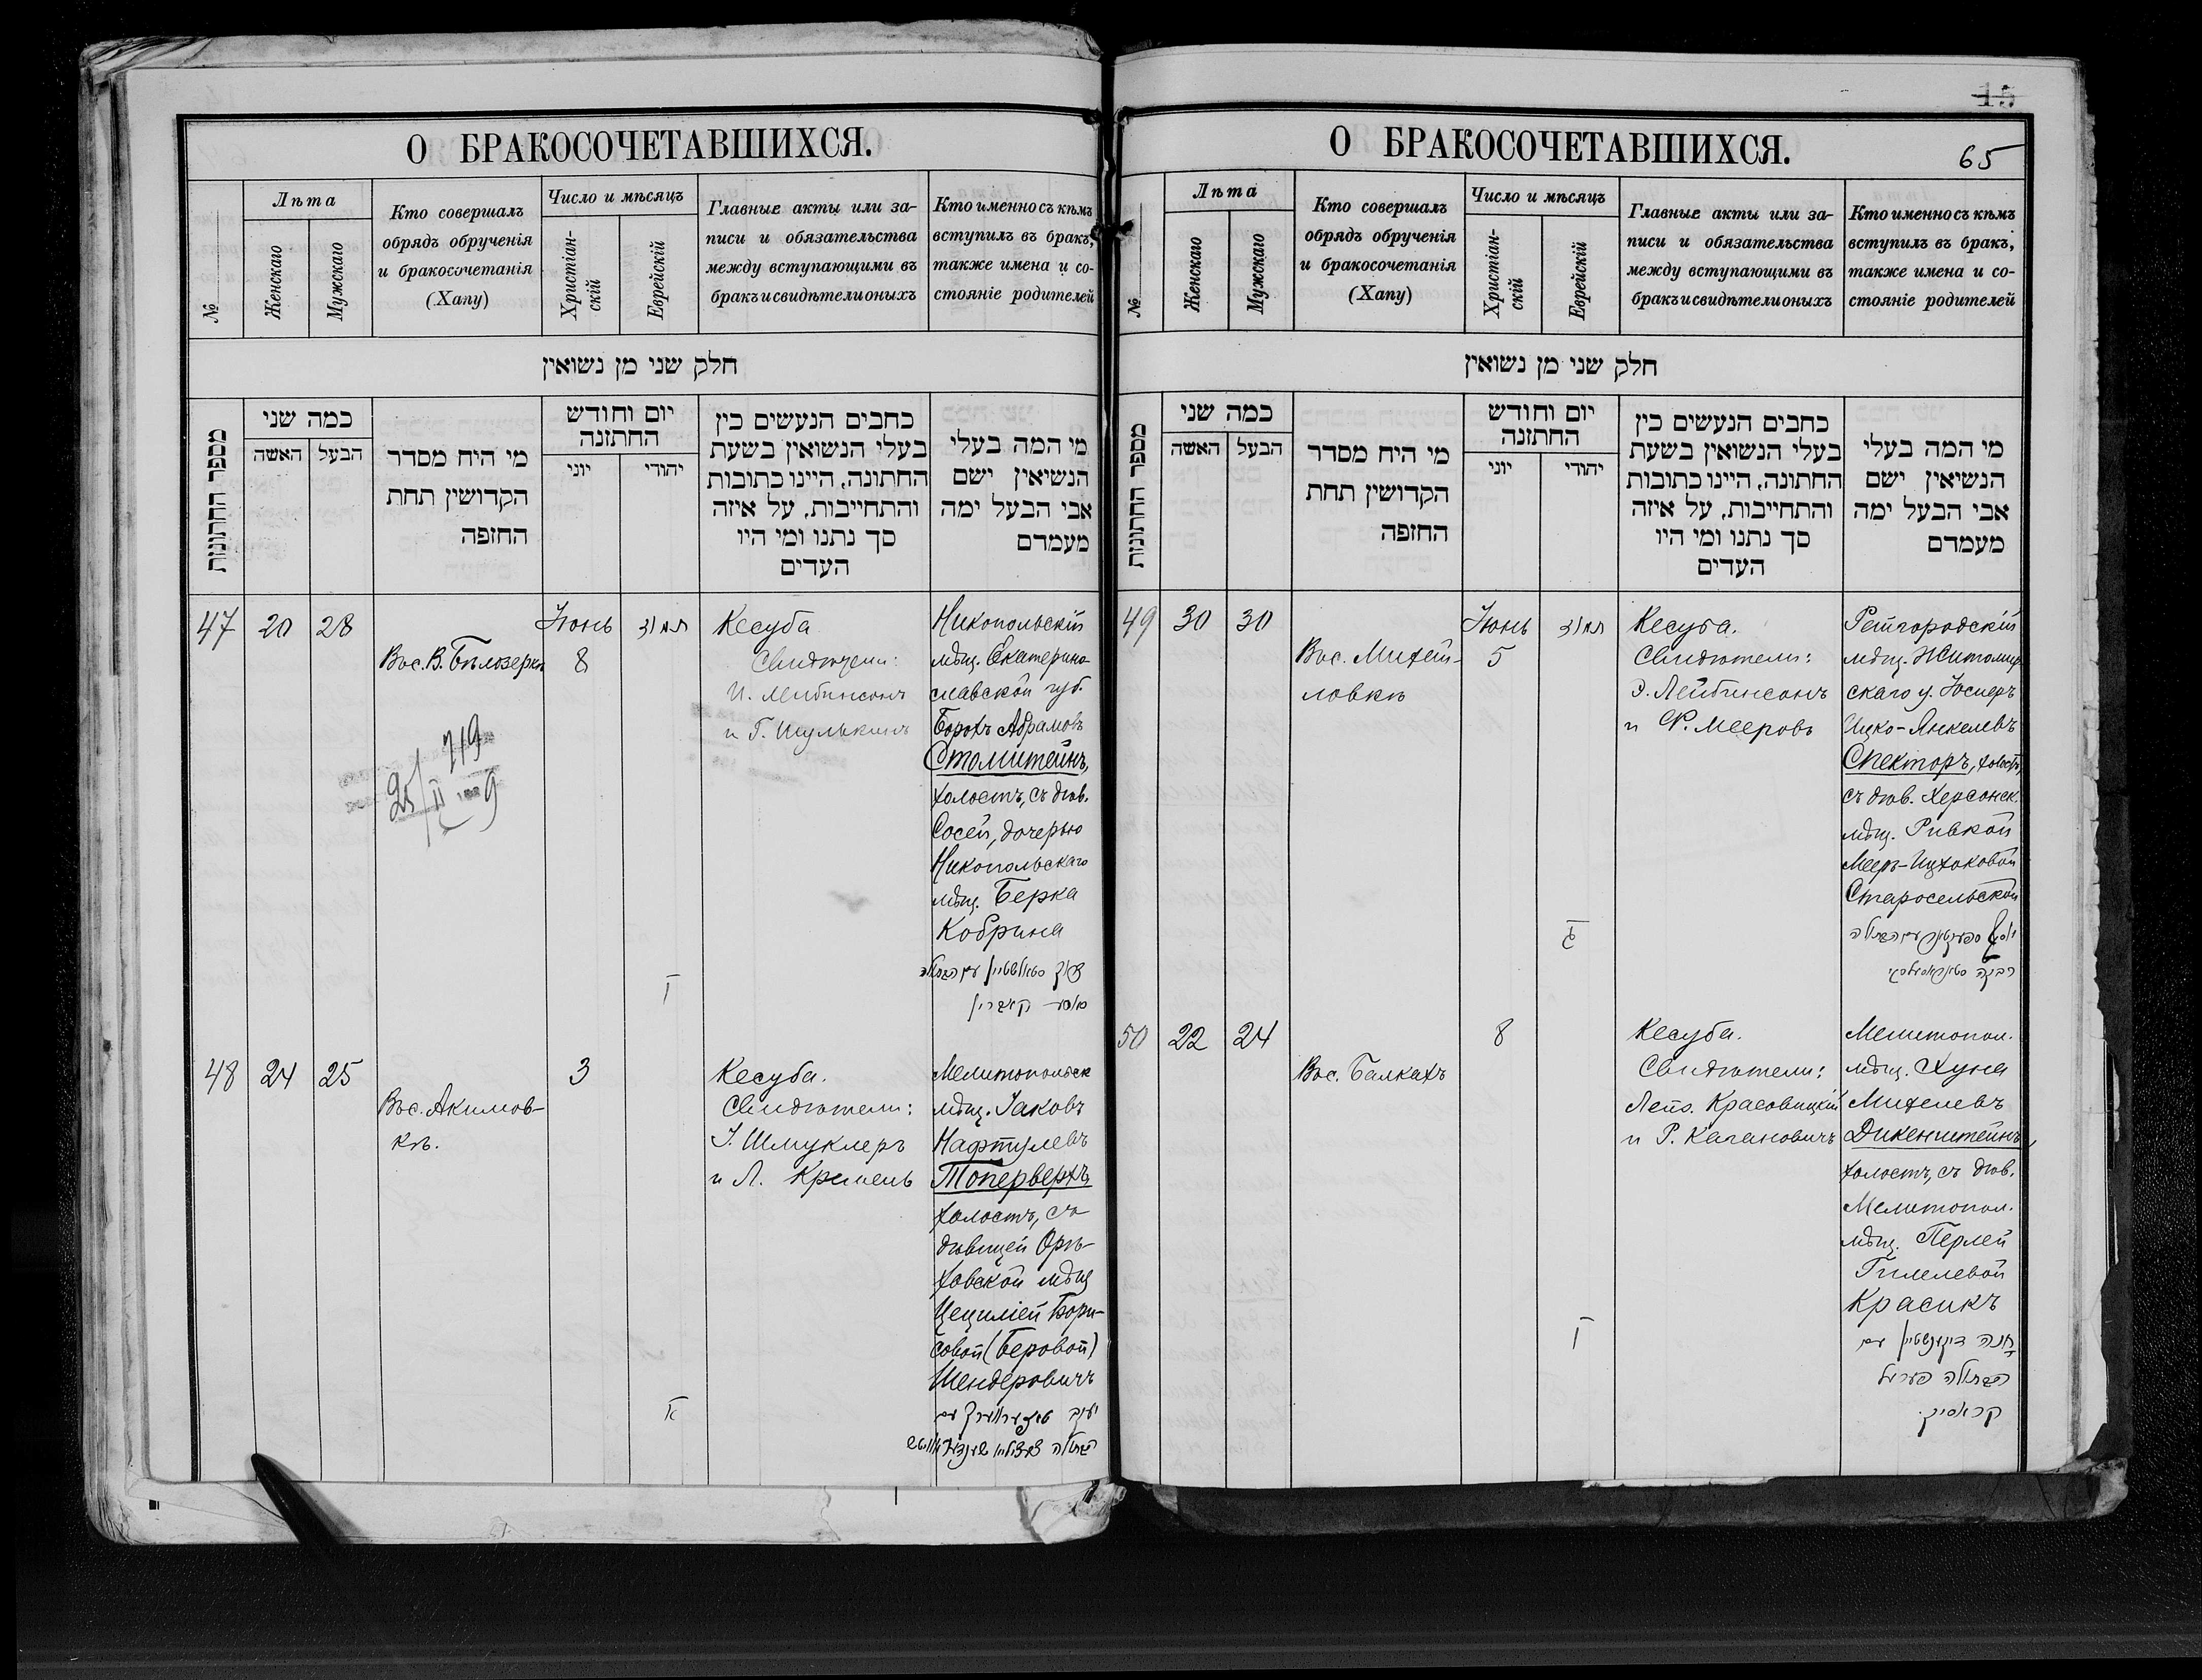 О БРАКОСОЧЕТАВШИХСЯ.
№
Лѣта
Женскаго
Мужскаго
Кто совершалъ
обрядъ обрученія
и бракосочетанія
(Хапу)
Число и мѣсяцъ
Христіан-
скій
Еврейскій
Главные акты или за-
писи и обязательства
между вступающими въ
бракъ и свидѣтели оныхъ
Кто именно съ кѣмъ
вступилъ въ бракъ,
также имена и со-
стояніе родителей
חלק שני מן נשואין
מספר החתונות
כמה שני
האשה
הבעל
מי היח מסדר
הקדושין תחת
החזפה
יום וחודש
החתזנה
יוני
יהודי
כחבים הנעשים כין
בעלי הנשואין בשעת
החתונה, היינו כתובות
והתחייבות, על איזה
סך נתנו ומי היו
העדים
מי המה בעלי
הנשיאין ישם
אבי הבעל ימה
מעמדם
47
20
28
Вос. В. Бѣлозеркѣ
Іюнь
8
תמוז
Кесуба
Свидѣтели:
И. Лейбинсонъ
и Г. Шулькинъ
Никопольскій
мѣщ. Екатерино-
славской губ.
Борохъ Абрамовъ
Столштейнъ,
холостъ, съ дѣв.
Сосей, дочерью
Никопольскаго
мѣщ. Берка
Кобрина
ברוך סטאלשטיין עם הבתולה
סאסע קאברין
719
25/II 9
48
24
25
Вос. Акимов-
кѣ.
3
Кесуба.
Свидѣтели:
І. Шмуклеръ
и Л. Кремень
Мелитопольск
мѣщ. Іаковъ
Нафтулевъ
Топервертъ,
холостъ, съ
дѣвицей Орѣ-
ховской мѣщ
Цециліей Бори-
совой (Беровой)
Шендеровичъ
א
О БРАКОСОЧЕТАВШИХСЯ.
15
65
№
Лѣта
Женскаго
Мужскаго
Кто совершалъ
обрядъ обрученія
и бракосочетанія
(Хапу)
Число и мѣсяцъ
Христіан-
скій
Еврейскій
Главные акты или за-
писи и обязательства
между вступающими въ
бракъ и свидѣтели оныхъ
Кто именно съ кѣмъ
вступилъ въ бракъ,
также имена и со-
стояніе родителей
חלק שני מן נשואין
מספר החתונות
כמה שני
האשה
הבעל
מי היח מסדר
הקדושין תחת
החזפה
יום וחודש
החתזנה
יוני
יהודי
כחבים הנעשים כין
בעלי הנשואין בשעת
החתונה, היינו כתובות
והתחייבות, על איזה
סך נתנו ומי היו
העדים
מי המה בעלי
הנשיאין ישם
אבי הבעל ימה
מעמדם
49
30
30
Вос. Михай-
ловкѣ
Іюнь
5
תמוז
Кесуба.
Свидѣтели:
Э. Лейбинсонъ
и Ф. Мееровъ
мѣщ. Житомир
скаго у. Іосперъ
Ицко-Янкелевъ
Спекторъ, холостъ,
съ дѣв. Херсонск.
мѣщ. Ривкой
Меер-Ицхоковой
Старосельской
ג
יוסף ספעקטאר עם הבתולה
רבקה סטאראסעלסקי
50
22
24
Вос. Балкахъ
8
Кесуба.
Свидѣтели:
Лейз. Красовицкій
и Р. Кагановичъ
Мелитопол.
мѣщ. Хуна
Михелевъ
Дикенштейнъ,
холостъ, съ дѣв.
Мелитопол.
мѣщ. Перлей
Гилелевой
Красикъ
ו
חנה דיקענשטיין עם
הבתולה פערל
קראסיק.